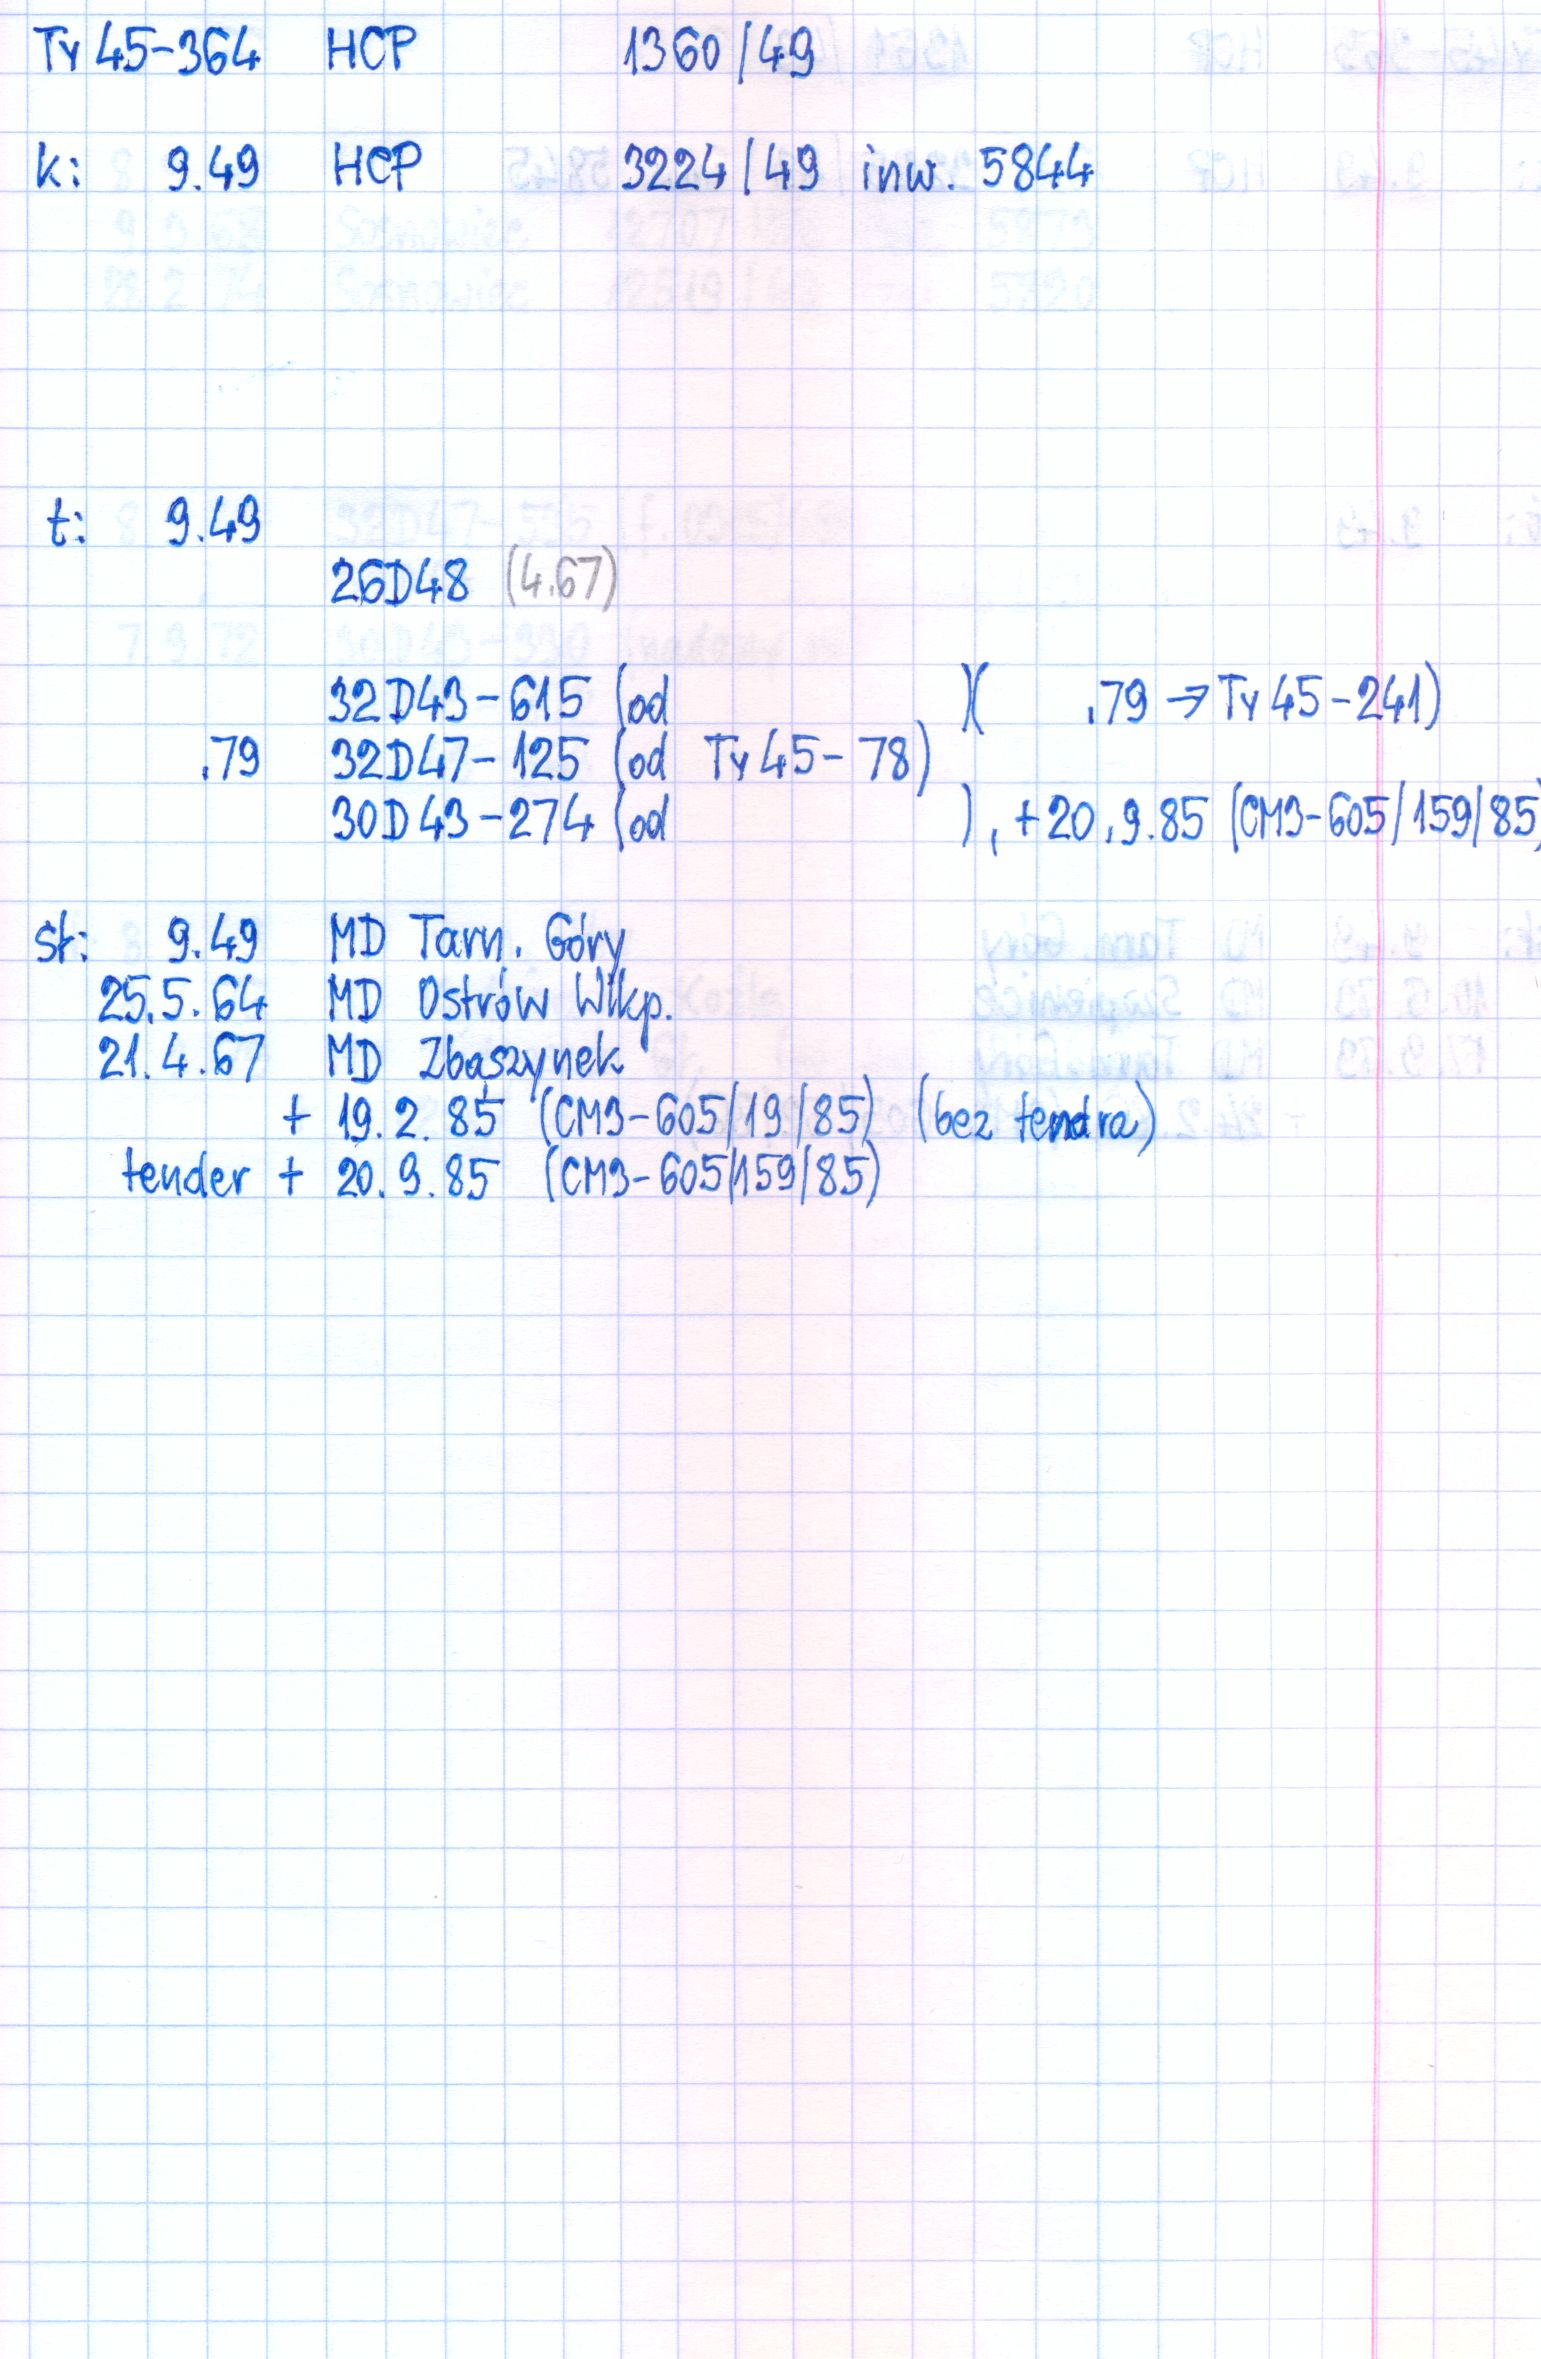 Ty 45-364 HCP 1360/49
k: 9.49 HCP 3224/49 inw. 5844
t: 9.49
26D48 (4.67)
32D43-615 (od )( .79 → Ty 45-241)
.79 32D47-125 (od Ty 45-78)
30D43-274 (od ), +20.9.85 (CM3-605/159/85)
st: 9.49 MD Tarn. Góry
25.5.64 MD Ostrów Wlkp.
21.4.67 MD Zbąszynek
+ 19.2.85 (CM3-605/19/85) (bez tendra)
tender + 20.9.85 (CM3-605/159/85)